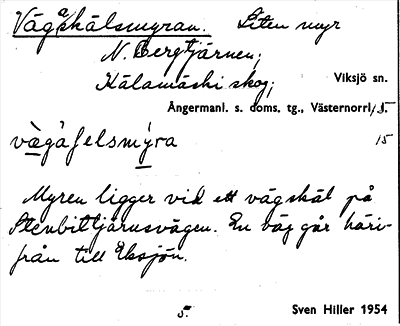 Vägskälsmyran. Liten myr
N. Bergtjärnen;
Kälamäshi skog; Viksjö sn.
Ångermanl. s. doms. tg., Västernorrl. l.
15
Myren ligger vid ett vägskäl på
Stenbittjärnsvägen. En väg går häri-
från till Eksjön.
5. Sven Hiller 1954